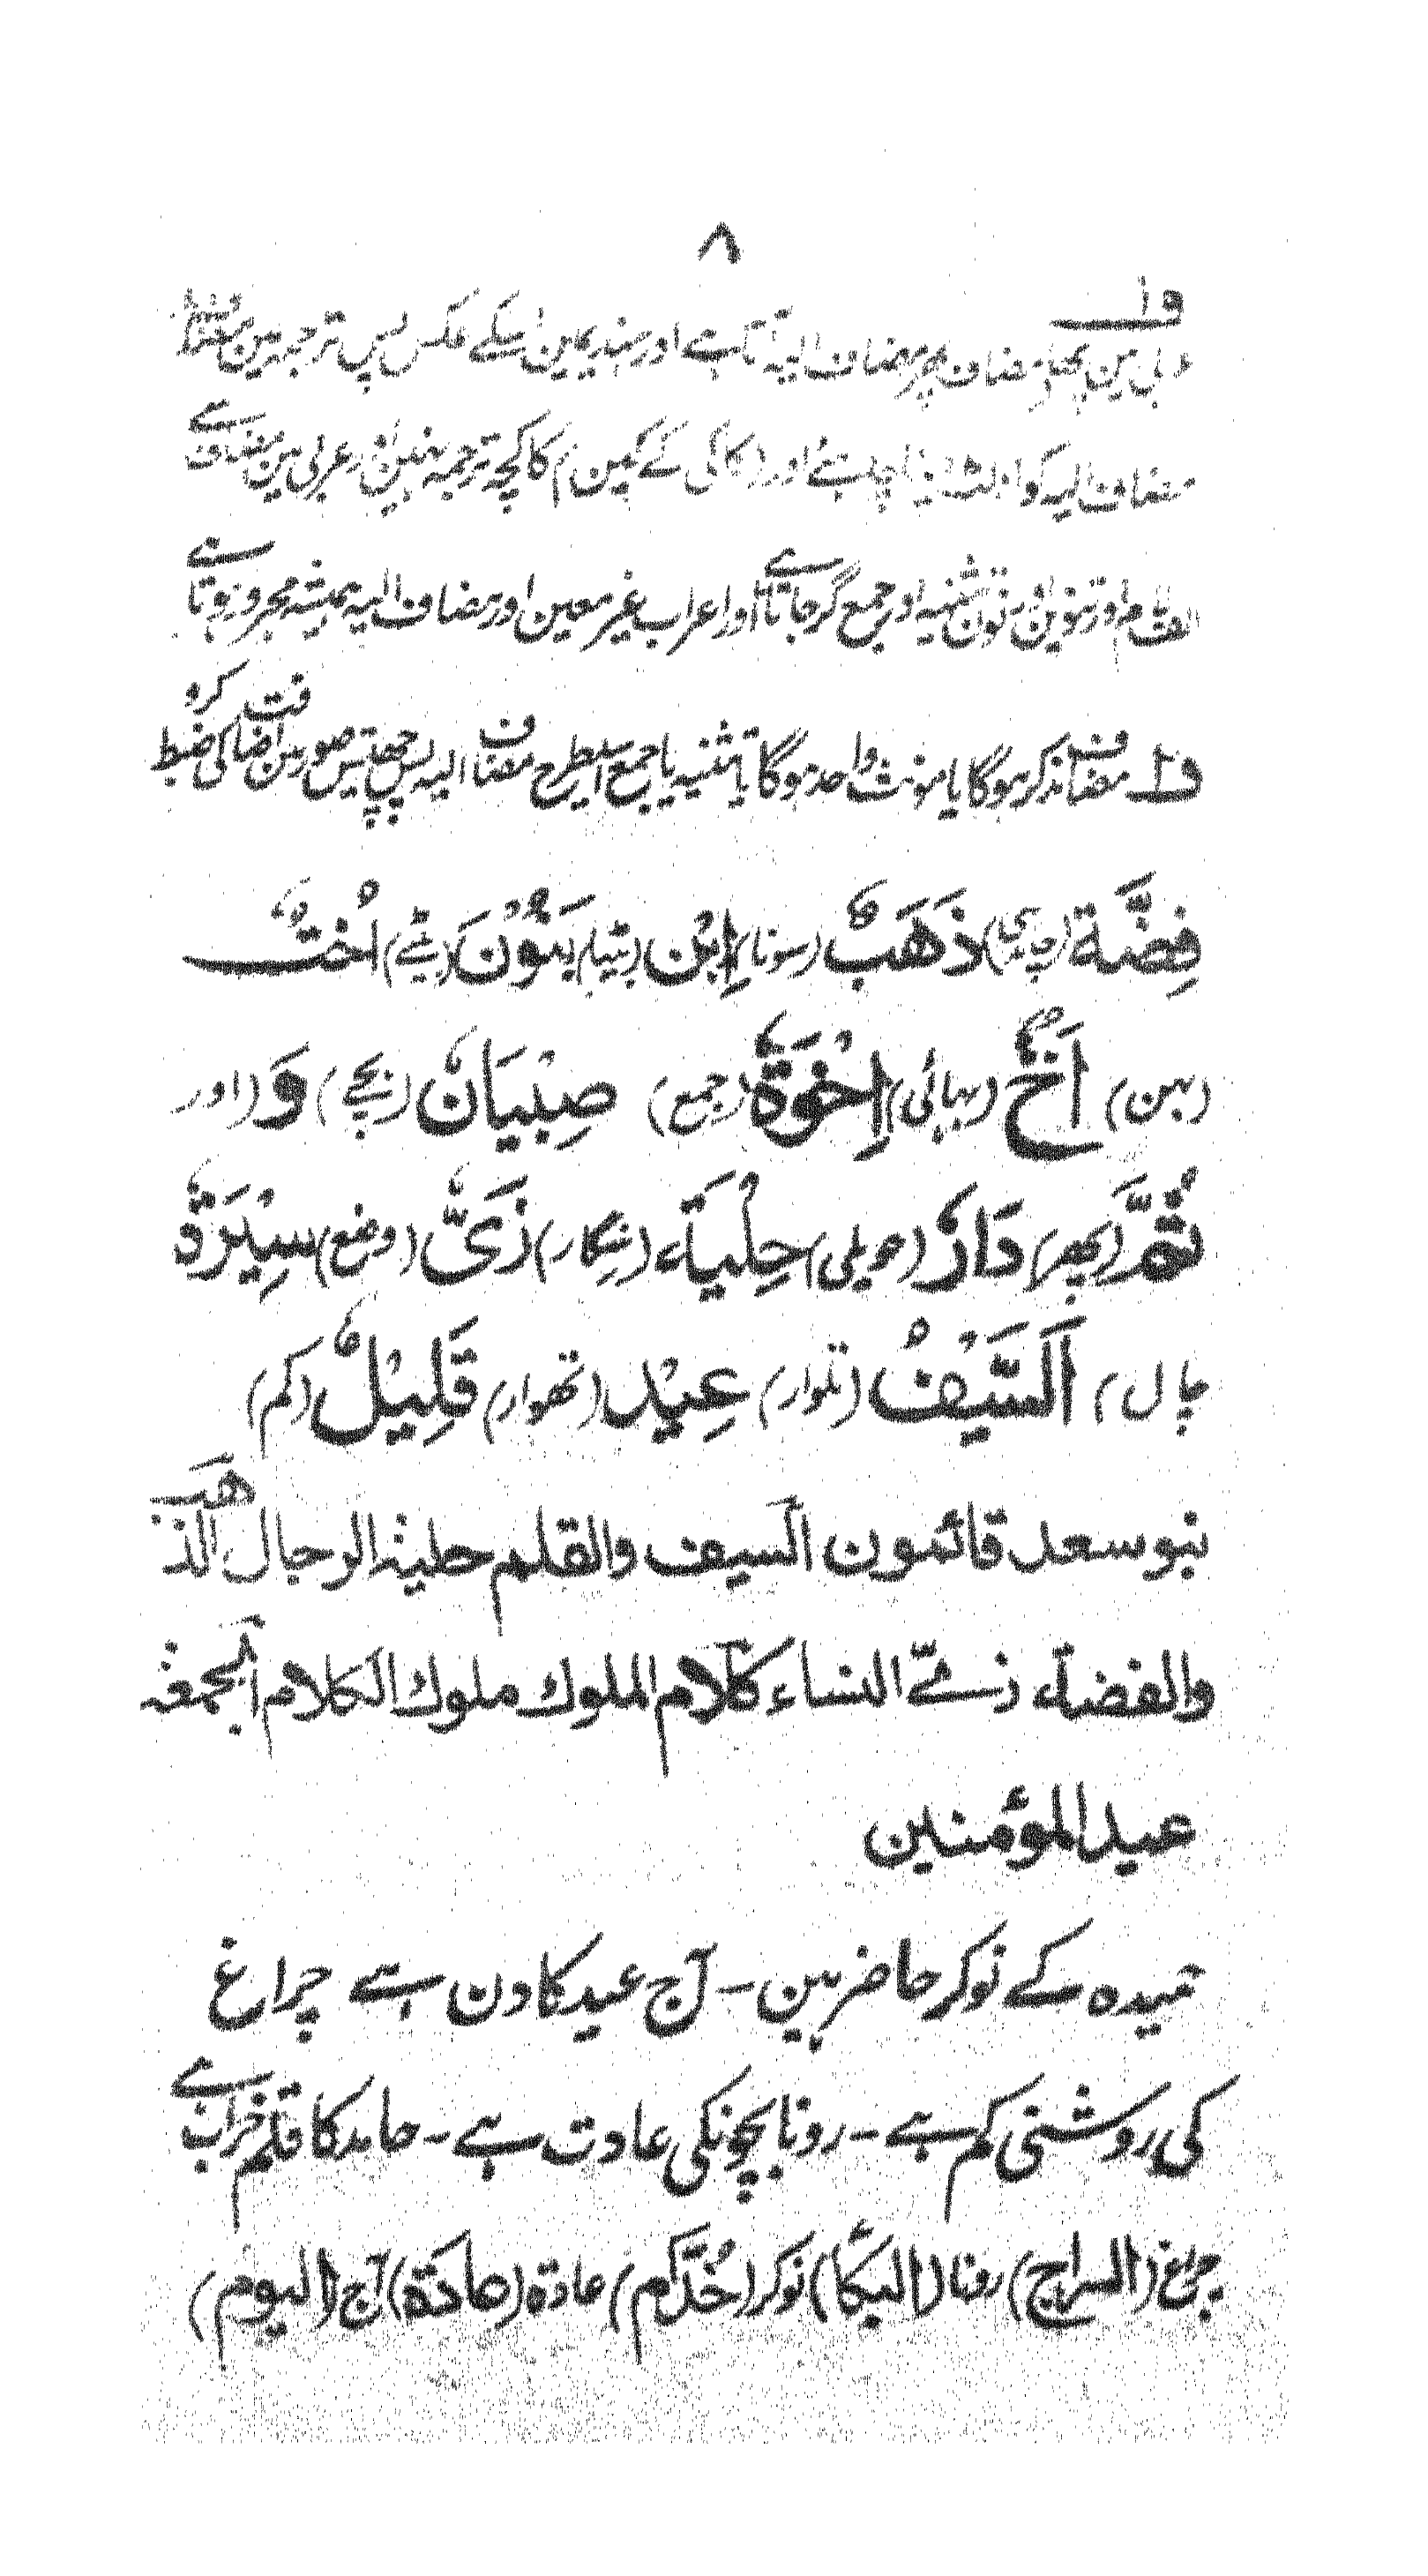 ۸
ف۱
عربی مین پہلے مضاف پھر مضاف الیہ آتا ہے اور ہندی مین اسکے عکس پس ترجمہ مین
مضاف الیہ کو اُلٹ دینا چاہئے اور (کا کی کے مین) کا کچہ ترجمہ نہین۔ عربی مین مضاف سے
الف لام اور تنوین نون تثنیہ اور جمع گر جاتا ہے اور اعراب غیر معین اور مضاف الیہ ہمیشہ مجرور ہوتا ہے
ف۲ مضاف مذکر ہوگا یا مونث واحد ہوگا یا تثنیہ یا جمع اسیطرح مضاف الیہ پس چھتیس صورتین اضافت کی ضبط کرو
فِضَّة (چاندی) ذَهَبٌ (سونا) اِبْن (بیٹا) بَنُوْنَ (بیٹے) اُخْتٌ
(بہن) اَخٌ (بھائی) اِخْوَةٌ (جمع) صِبْيَانٌ (بچے) وَ (اور
ثُمَّ (پھر) دَارٌ (حویلی) حِلْيَة (سنگار) زَیٌّ (وضع) سِيْرَةٌ
چال) اَلسَّيْفُ (تلوار) عِيْد (تھوار) قَلِيْلٌ (کم)
بنو سعد قائمون السيف والقلم حلية الرجال الذهب
والفضة زے النساء كلام الملوك ملوك الكلام الجمعة
عيد المؤمنين
حمیدہ کے نوکر حاضر ہین - آج عید کا دن ہے چراغ
کی روشنی کم ہے - رونا بچونکی عادت ہے - حامد کا قلم خراب ہے
چراغ (السراج) رونا (البكاء) نوکر (خُدَّام) عادة (عادَة) آج (اليوم)